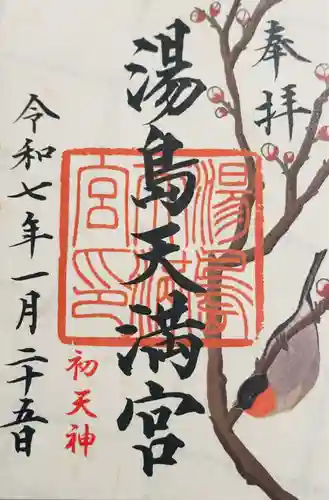 奉拝
湯島天満宮
湯島天満宮印
初天神
令和七年一月二十五日